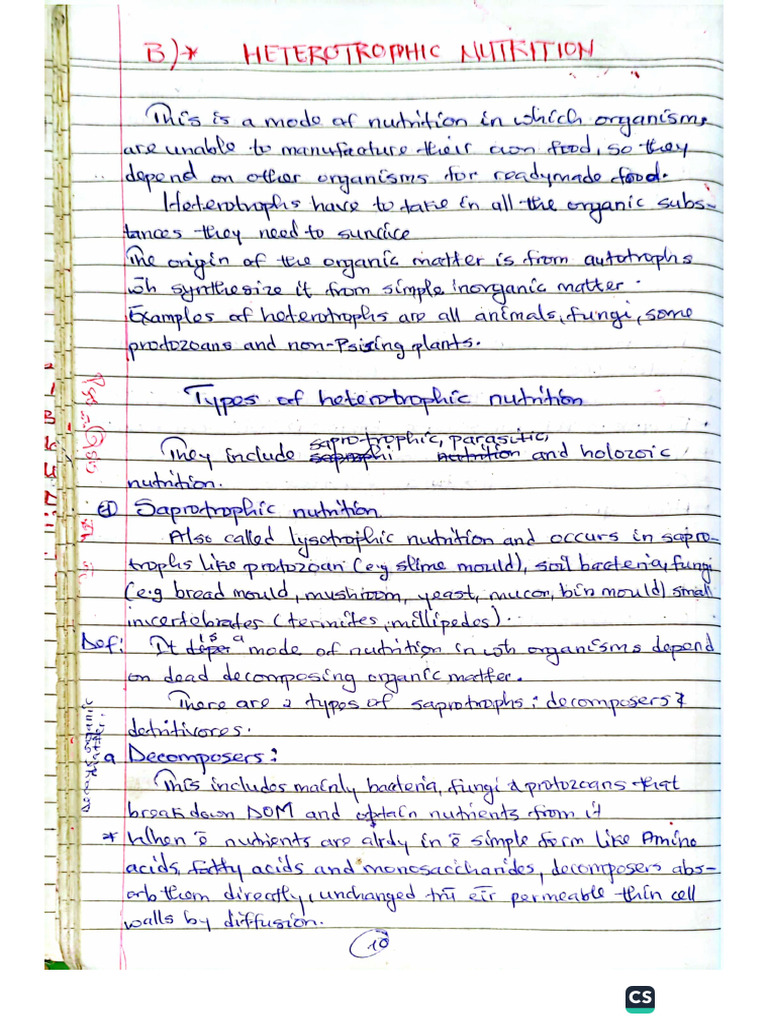 B)* HETEROTROPHIC NUTRITION
This is a mode of nutrition in which organisms
are unable to manufacture their own food, so they
depend on other organisms for readymade food.
Heterotrophs have to take in all the organic subs-
tances they need to survive
The origin of the organic matter is from autotrophs
wh synthesize it from simple inorganic matter.
Examples of heterotrophs are all animals, fungi, some
protozoans and non-Psising plants.
Types of heterotrophic nutrition
They include saprotrophic, parasitic, and holozoic
nutrition.
① Saprotrophic nutrition
Also called lysotrophic nutrition and occurs in sapro-
trophs like protozoan (e.g slime mould), soil bacteria, fungi
(e.g bread mould, mushroom, yeast, mucor, bin mould) small
invertebrates (termites, millipedes)..
Def: It is a mode of nutrition in wh organisms depend
on dead decomposing organic matter.
There are 2 types of saprotrophs: decomposers &
detritivores.
a Decomposers:
This includes mainly bacteria, fungi & protozoans that
break down DOM and obtain nutrients from it
* When ē nutrients are alrdy in ē simple form like Amino
acids, fatty acids and monosaccharides, decomposers abs-
orb them directly, unchanged tru eir permeable thin cell
walls by diffusion.
10
CS